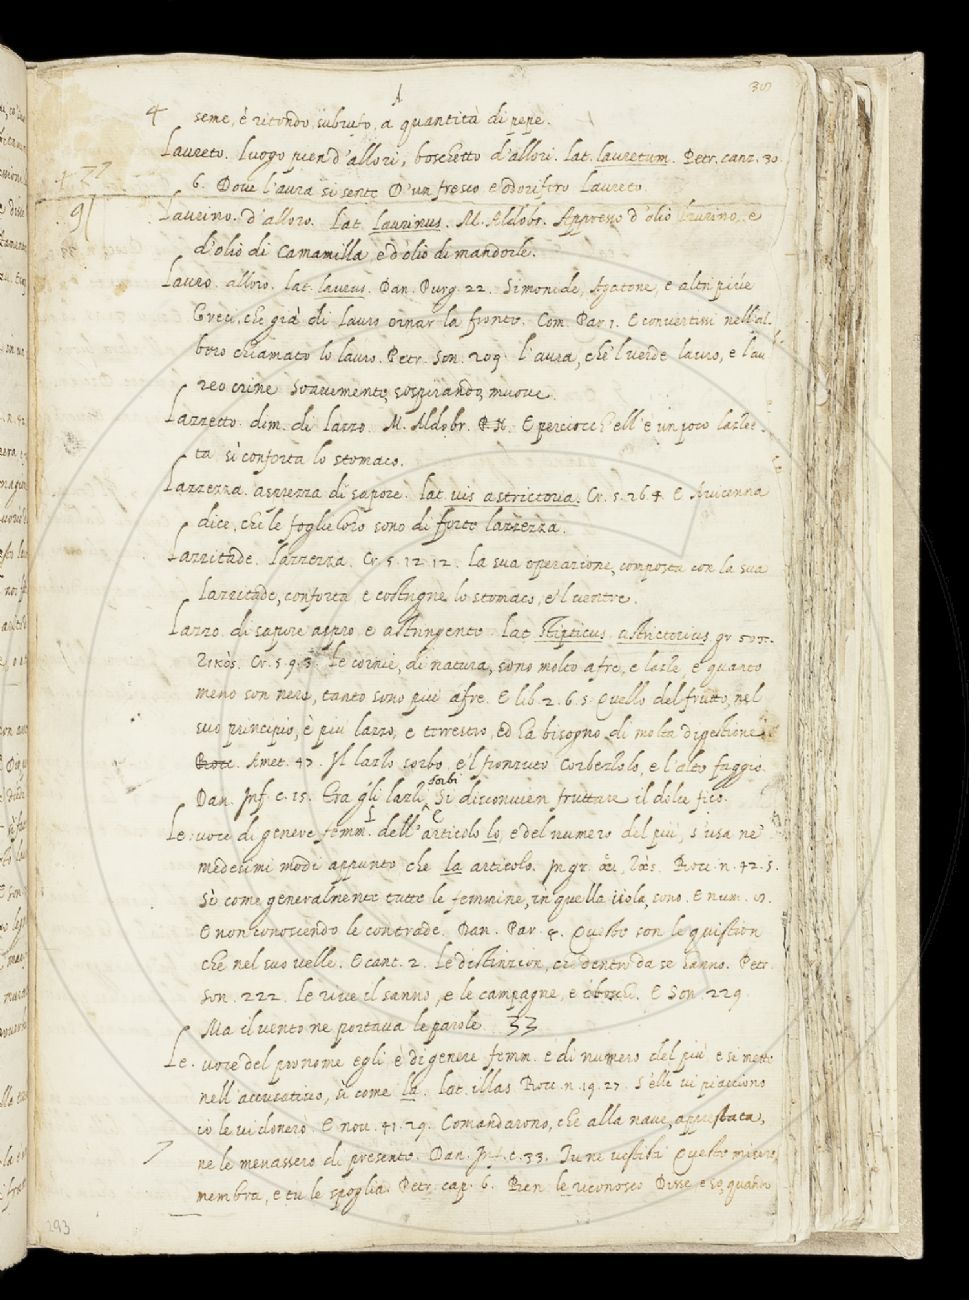 4 seme, è ritondo, subrufo, a quantità di pepe.
Laureto. Luogo pien d'allori, boschetto d'allori. Lat. lauretum. Petr. canz. 30.
6. Dove l'aura si sente D'un fresco e odorifero Laureto.
91 Laurino. d'alloro. Lat. laurinus. M. Aldobr. Appresso d'olio laurino, e
d'olio di Camamilla, e d'olio di mandorle.
Lauro. alloro. Lat. laurus. Dan. Purg. 22. Simonide, Agatone, e altri piúe
Greci, che già di lauro ornar la fronte. Com. Par. 1. E convertissi nell'al-
bero chiamato lo lauro. Petr. Son. 209. L'aura, che'l verde lauro, e l'au
reo crine Soavemente, sospirando, muove.
Lazzetto. dim. di Lazzo. M. Aldobr. P. N. E perciocch'ell'è un poco lazzet-
ta sì conforta lo stomaco.
Lazzezza. asprezza di sapore. Lat. vis astrictoria. Cr. 5. 26. 4. E Avicenna
dice, che le foglie loro sono di forte lazzezza.
Lazzitade. Lazzezza. Cr. 5. 12. 12. La sua operazione, composta con la sua
lazzitade, conforta e costrigne lo stomaco, e'l ventre.
Lazzo. di sapore aspro e astringente. Lat. Stipticus, astrictorius gr.
Cr. 5. 9. 3. Le cornie, di natura, sono molto afre, e lazze, e quanto
meno son nere, tanto sono più afre. E lib. 2. 6. 5. Quello del frutto, nel
suo principio, è più lazzo, e terrestro, ed ha bisogno di molta digestione.
Bocc. Amet. 47. Il lazzo sorbo, e'l fronzuto Corbezzolo, e l'alto faggio.
Dan. Inf. c. 15. Tra gli lazzi sorbi Si disconvien fruttare il dolce fico.
Le. voce di genere femm. dell'articolo lo, e del numero del più, s'usa ne'
medesimi modi appunto che la articolo. In gr. Bocc. n. 42. 5.
Sì come generalmente tutte le femmine, in quella isola, sono. E num.
E non conoscendo le contrade. Dan. Par. 4. Queste son le quistion
che nel suo velle. E cant. 2. Le distinzion, che dentro da se hanno. Petr.
Son. 222. Le rive il sanno, e le campagne, e i boschi. E Son. 229.
Ma il vento ne portava le parole. 33
Le. voce del pronome egli è di genere femm. e di numero del più e si mette
nell'accusativo, sì come la. Lat. illas. Bocc. n. 19. 27. S'elle vi piacciono
io le vi donerò. E nov. 41. 29. Comandarono, che alla nave, apprestata,
ne le menassero di presente. Dan. Inf. c. 33. Tu ne vestisti Queste misere
membra, e tu le spoglia. Petr. cap. 6. Ben le riconosco Disse e so, quando
293